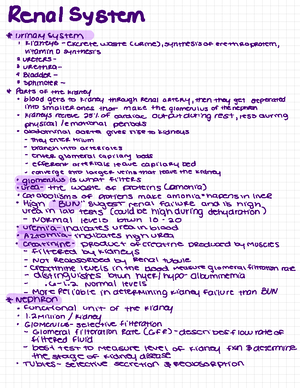 Renal System
* Urinary System
* Kidneys - Excrete waste (urine), synthesis of erythroprotein,
vitamin D synthesis
* Ureters -
* Urethra -
* Bladder -
* Sphincter -
* Parts of the Kidney
- blood gets to kidney through renal artery, then they get separated
into smaller ones that make the glomerulus of the nephron
- Kidneys receive 25% of cardiac output during rest, less during
physical / emotional periods
- abdominal aorta gives rise to kidneys
- they enter hilum
- branch into arterioles
- enter glomeral capillary beds
- efferent arterioles leave capillary bed
- converge into larger veins that leave the kidney
- glomerulus is what filters
- Urea - the waste of proteins (amonia)
- Catabolisms of proteins make amonia happens in liver
- High "BUN" suggest renal failure and is high
urea in lab tests (could be high during dehydration)
- Normal levels btwn 10 - 20
- uremia - indicates urea in blood
- Azotemia - indicates high urea
- Creatinine - product of creatine produced by muscles
- filtered by kidneys
- Not reabsorbed by renal tubule
- Creatinine levels in the blood measure glomerular filtration rate
- distinguishes btwn hyper/hypo albuminemia
- .6-1.2 Normal levels
- More reliable in determining kidney failure than BUN
* Nephron
- Functional unit of the kidney
- 1.2 million / kidney
- Glomerulus - selective filtration
- Glomeral filtration Rate (GFR) - describes flow rate of
filtered fluid
- best test to measure level of kidney fxn & determine
the stage of kidney disease
- Tubules - selective secretion & reabsorption